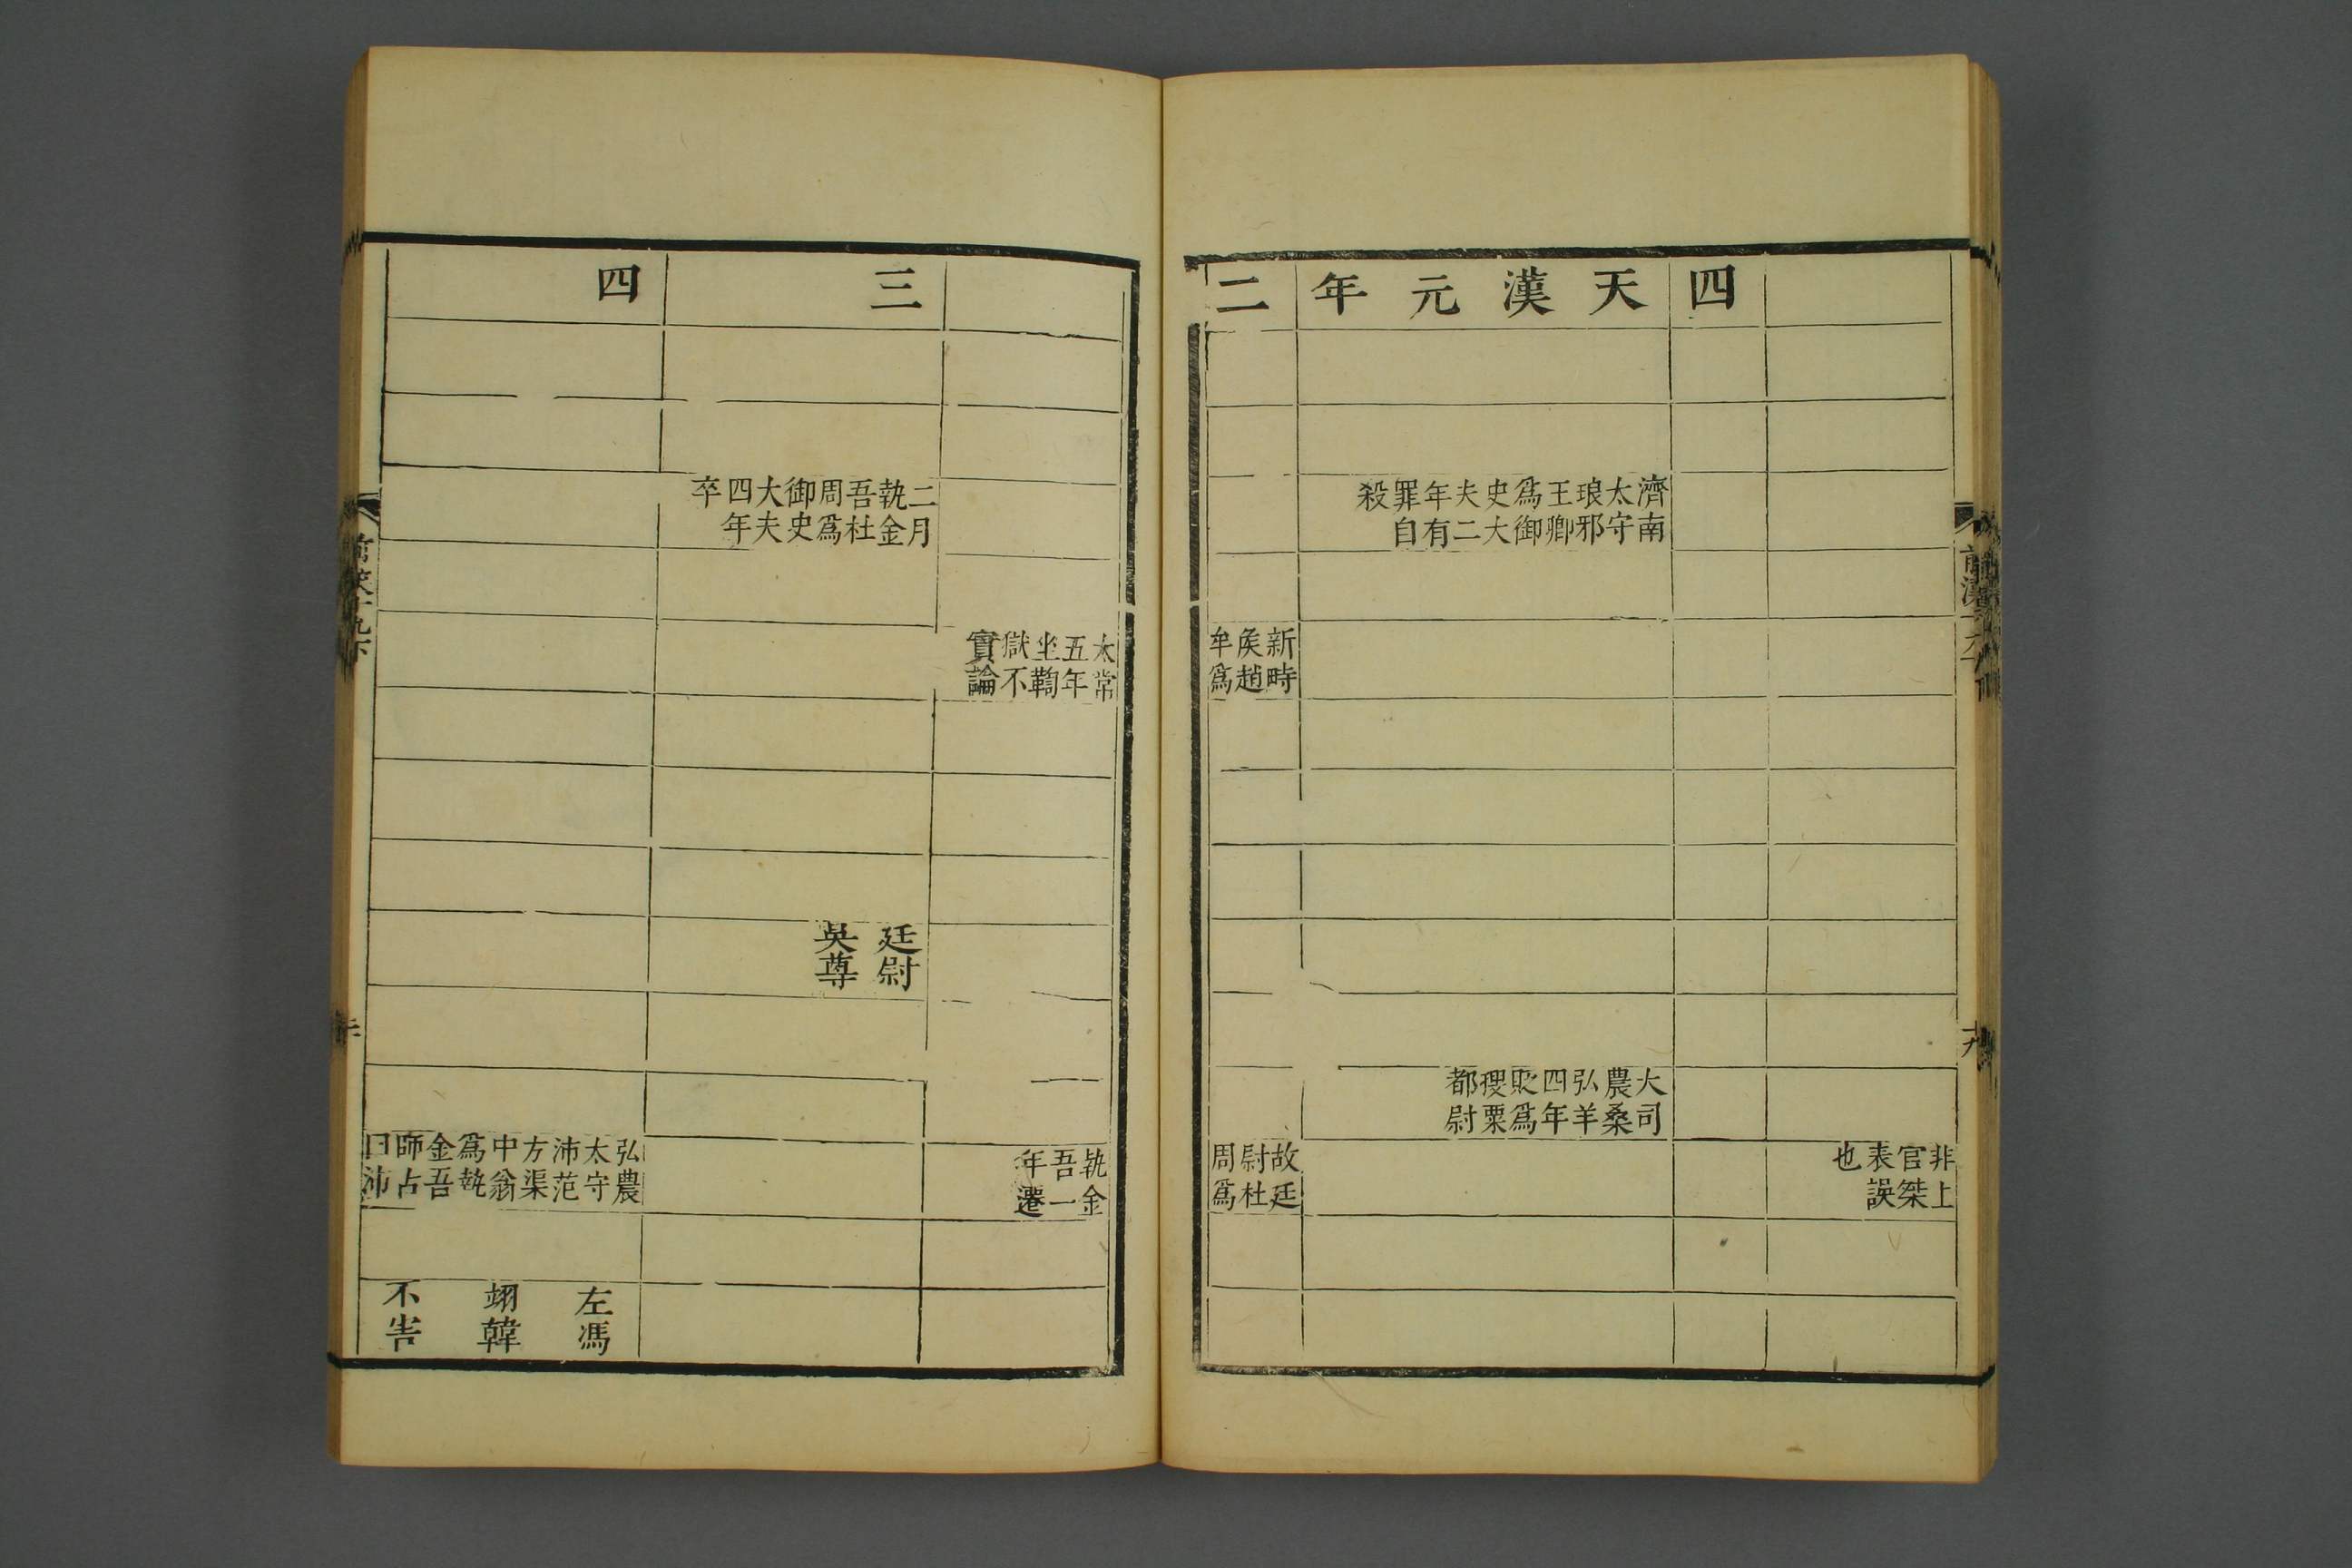 非上官桀表誤也
四
天漢元年
濟南太守琅邪王卿爲御史大夫二年有罪自殺
大司農桑弘羊四年敗爲搜粟都尉
二
新畤侯趙牟爲
故廷尉杜周爲
太常五年坐鞫獄不實論
執金吾一年遷
三
二月執金吾杜周爲御史大夫四年卒
廷尉吳尊
四
弘農太守沛范方渠中翁爲執金吾師占曰沛
左馮翊韓不害